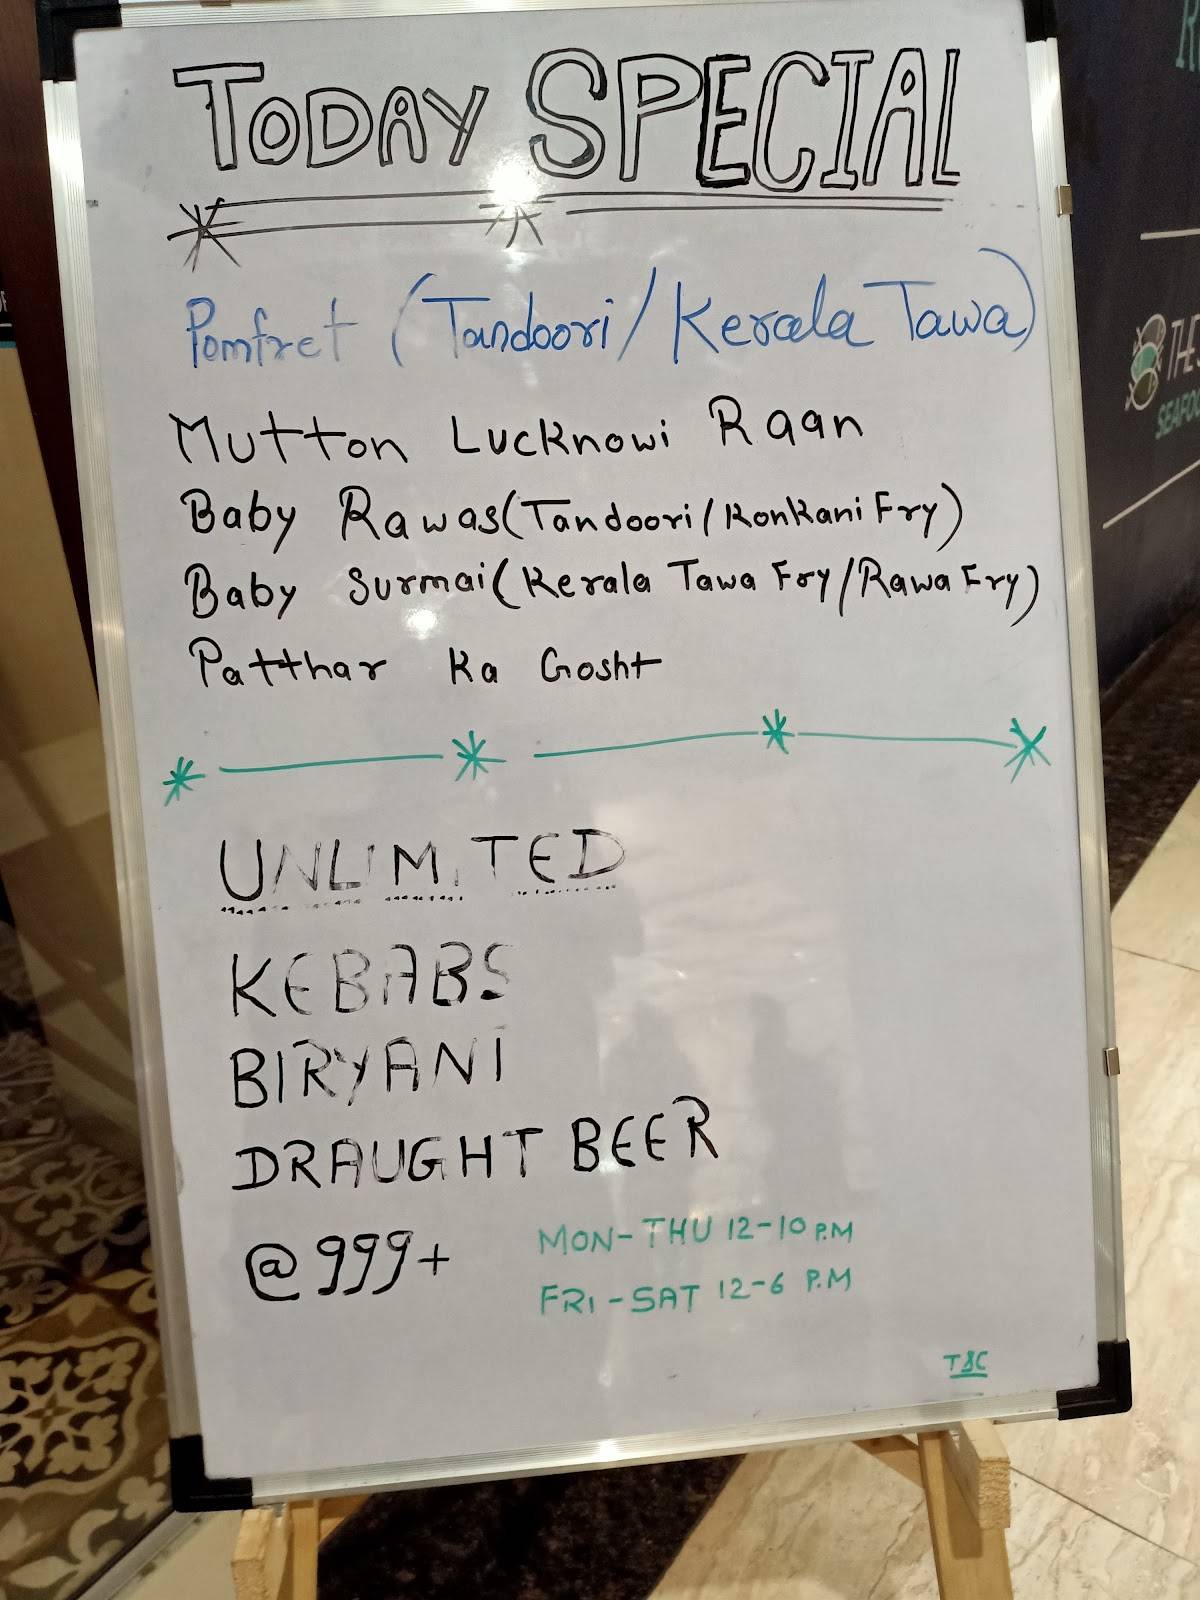 TODAY SPECIAL
Pomfret (Tandoori/Kerala Tawa)
Mutton Lucknowi Raan
Baby Rawas(Tandoori/Konkani Fry)
Baby Surmai(Kerala Tawa Fry/Rawa Fry)
Patthar Ka Gosht
UNLIMITED
KEBABS
BIRYANI
DRAUGHT BEER
@999+
MON-THU 12-10 P.M
FRI-SAT 12-6 P.M
T&C
THE